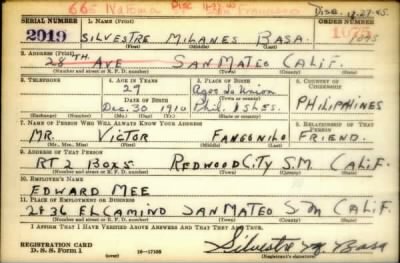 665 Natoma San Francisco Disc. 12-27-45
SERIAL NUMBER 1. Name (Print) ORDER NUMBER
2019 SILVESTRE MILANES BASA 1095
(First) (Middle) (Last)
2. Address (Print)
28TH AVE SAN MATEO CALIF.
(Number and street or R. F. D. number) (Town) (County) (State)
3. Telephone 4. Age in Years 5. Place of Birth 6. Country of Citizenship
29 Agoo La Union
Date of Birth (Town or county)
Dec. 30 1910 Phil. Isles. PHILIPPINES
(Exchange) (No.) (Mo.) (Day) (Yr.) (State or country)
7. Name of Person Who Will Always Know Your Address 8. Relationship of That Person
MR. VICTOR FRIEND.
(Mr., Mrs., Miss) (First) (Middle) (Last)
9. Address of That Person
RT 2 BOX 5 REDWOOD CITY S.M. CALIF.
(Number and street or R. F. D. number) (Town) (County) (State)
10. Employer's Name
EDWARD MEE
11. Place of Employment or Business
2436 EL CAMINO SAN MATEO S M CALIF.
(Number and street or R. F. D. number) (Town) (County) (State)
I Affirm That I Have Verified Above Answers and That They Are True.
REGISTRATION CARD
D. S. S. Form 1 16—17105 Silvestre M. Basa
(Registrant's signature)